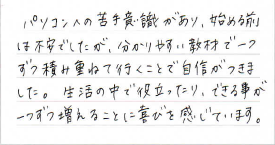 パソコンへの苦手意識があり、始める前
は不安でしたが、分かりやすい教材で一つ
ずつ積み重ねて行くことで自信がつきま
した。生活の中で役立ったり、できる事が
一つずつ増えることに喜びを感じています。